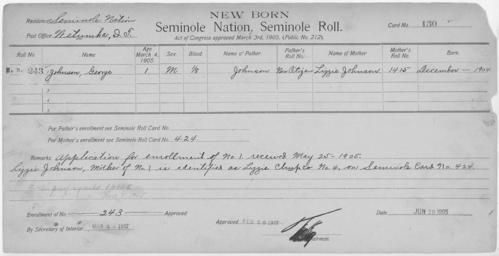 NEW BORN
Residence Seminole Nation
Seminole Nation, Seminole Roll.
Card No. 130
Post Office,
Act of Congress approved March 3rd, 1905, (Public No. 212).
Roll No. Name Age March 4, 1905 Sex. Blood. Name of Father. Father's Roll No. Name of Mother Mother's Roll No. Born.
N.B. 243 Johnson, George 1 M Johnson Non Citizen Lizzie Johnson 1415 December
For Father's enrollment see Seminole Roll Card No.
For Mother's enrollment see Seminole Roll Card No. 424
Remarks: Application for enrollment of No. 1 received May 25 - 1905.
Lizzie Johnson, Mother of No. 1 is identified as Lizzie No. 4, on Seminole Card No. 424.
Enrollment of No. 243 Approved
Approved
Chairman.
Date JUN 1905
By Secretary of Interior